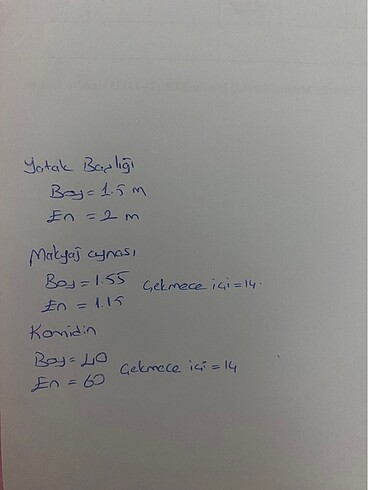 Yatak Başlığı
Boy = 1.5 m
En = 2 m
Makyaj aynası
Boy = 1.55 Çekmece içi = 14.
En = 1.15
Komidin
Boy = 40
En = 60 Çekmece içi = 14